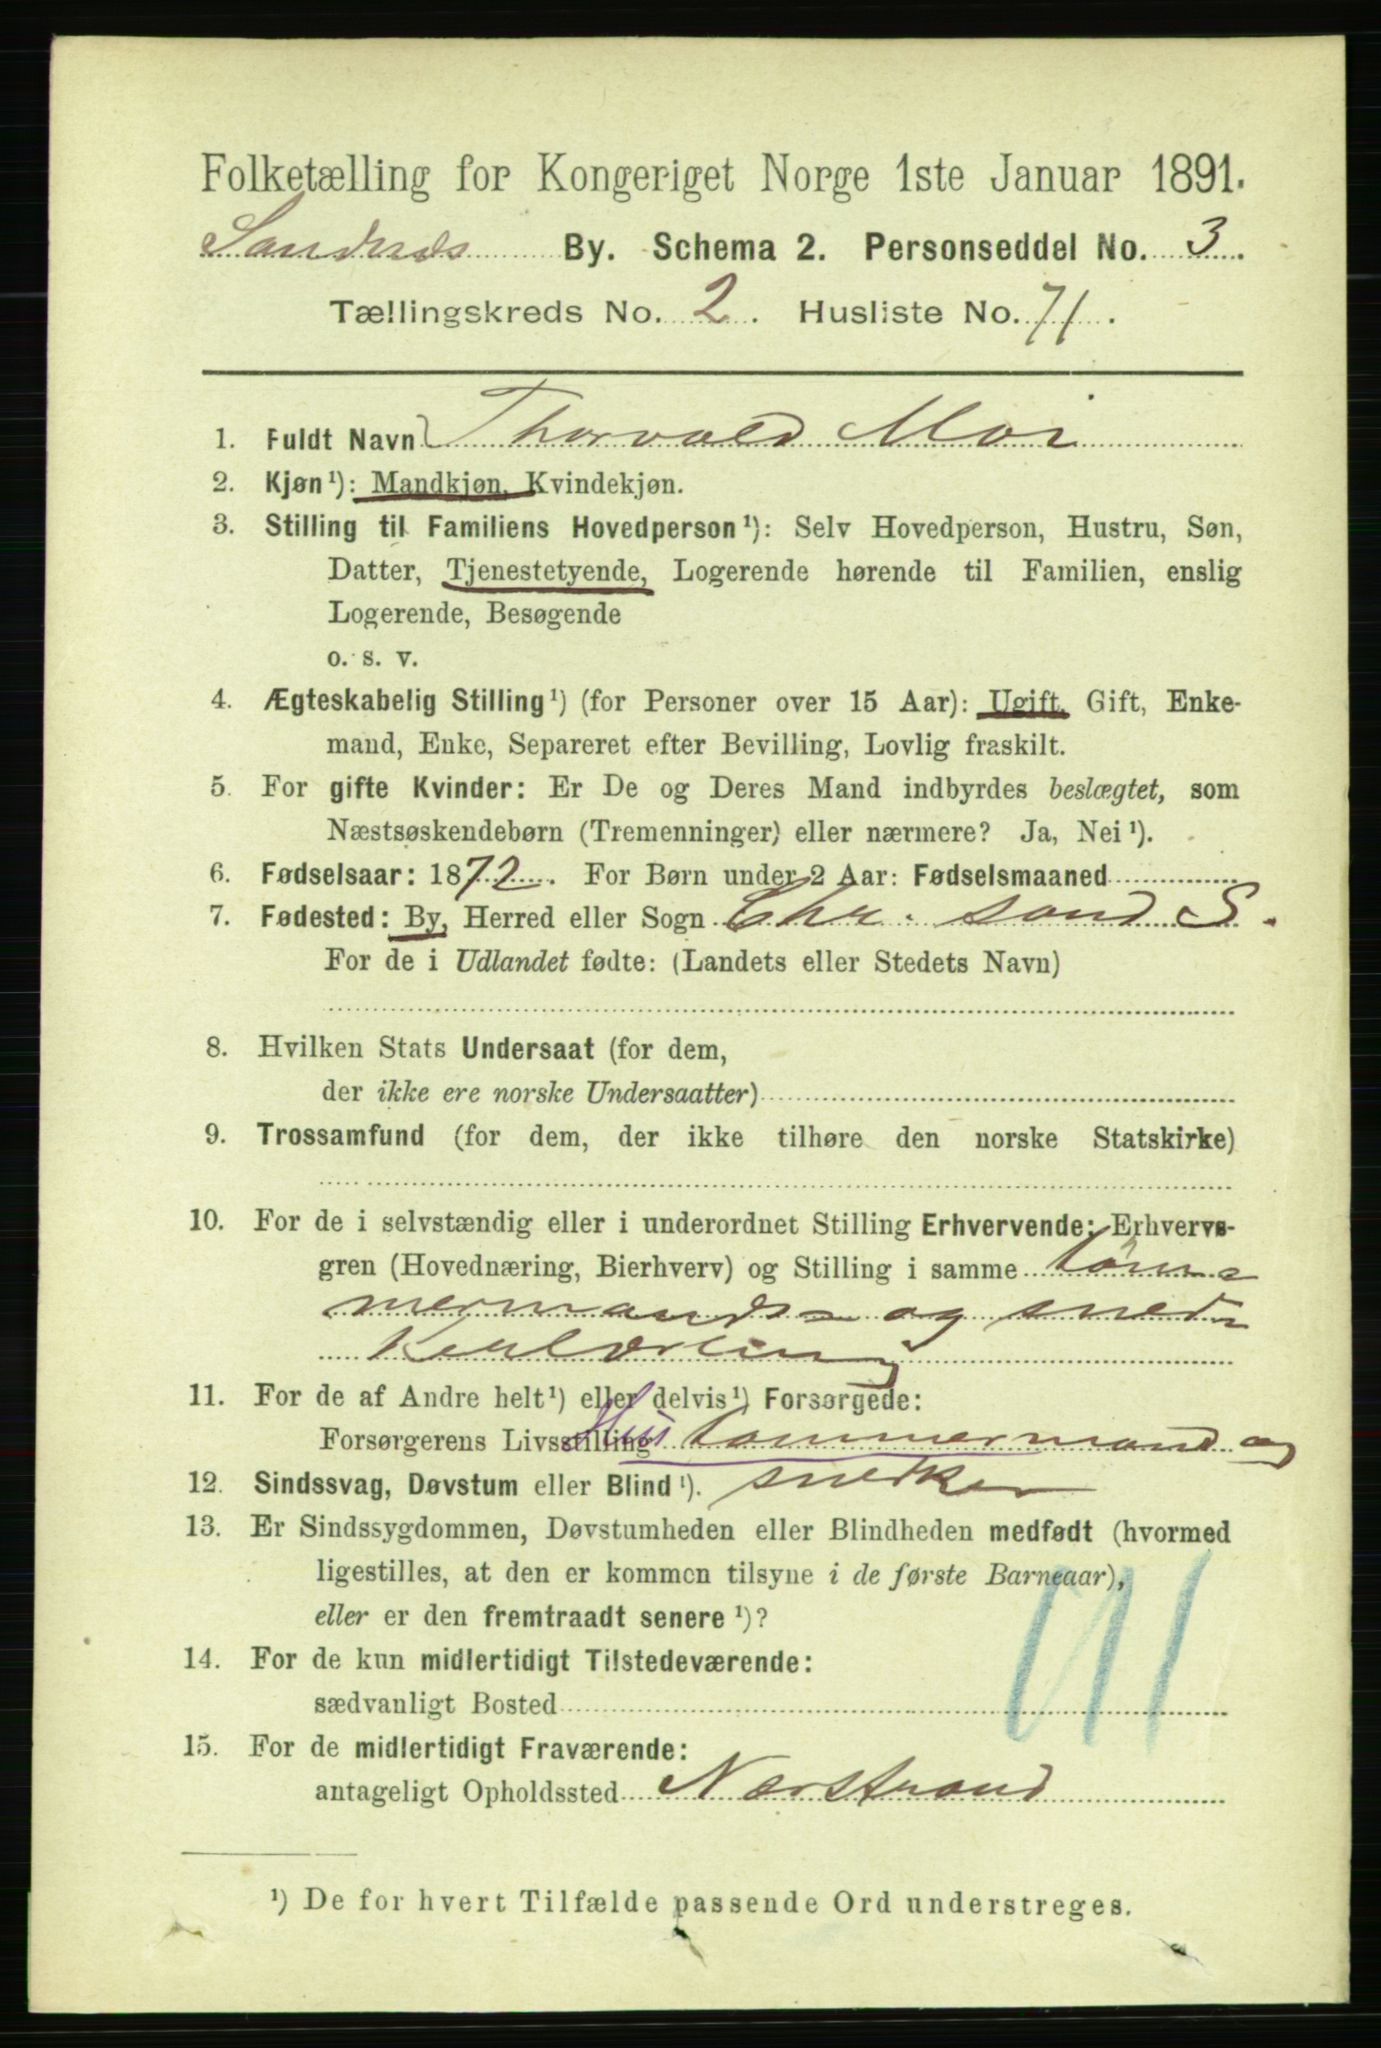 Folketælling for Kongeriget Norge 1ste Januar 1891.
Sandnæs By. Schema 2. Personseddel No. 3.
Tællingskreds No. 2. Husliste No. 71.
1. Fuldt Navn Thorvald Moi
2. Kjøn ¹): Mandkjøn, Kvindekjøn.
3. Stilling til Familiens Hovedperson ¹): Selv Hovedperson, Hustru, Søn,
Datter, Tjenestetyende, Logerende hørende til Familien, enslig
Logerende, Besøgende
o. s. v.
4. Ægteskabelig Stilling ¹) (for Personer over 15 Aar): Ugift, Gift, Enke-
mand, Enke, Separeret efter Bevilling, Lovlig fraskilt.
5. For gifte Kvinder: Er De og Deres Mand indbyrdes beslægtet, som
Næstsøskendebørn (Tremenninger) eller nærmere? Ja, Nei ¹).
6. Fødselsaar: 1872. For Børn under 2 Aar: Fødselsmaaned
7. Fødested: By, Herred eller Sogn Chr.sand S.
For de i Udlandet fødte: (Landets eller Stedets Navn)
8. Hvilken Stats Undersaat (for dem,
der ikke ere norske Undersaatter)
9. Trossamfund (for dem, der ikke tilhøre den norske Statskirke)
10. For de i selvstændig eller i underordnet Stilling Erhvervende: Erhvervs-
gren (Hovednæring, Bierhverv) og Stilling i samme tøm-
mermands- og sned-
kerlærling
11. For de af Andre helt ¹) eller delvis ¹) Forsørgede:
Forsørgerens Livsstilling Hus tømmermand og
12. Sindssvag, Døvstum eller Blind ¹). snedker
13. Er Sindssygdommen, Døvstumheden eller Blindheden medfødt (hvormed
ligestilles, at den er kommen tilsyne i de første Barneaar),
eller er den fremtraadt senere ¹)?
14. For de kun midlertidigt Tilstedeværende:
sædvanligt Bosted
15. For de midlertidigt Fraværende:
antageligt Opholdssted Nærstrand
¹) De for hvert Tilfælde passende Ord understreges.